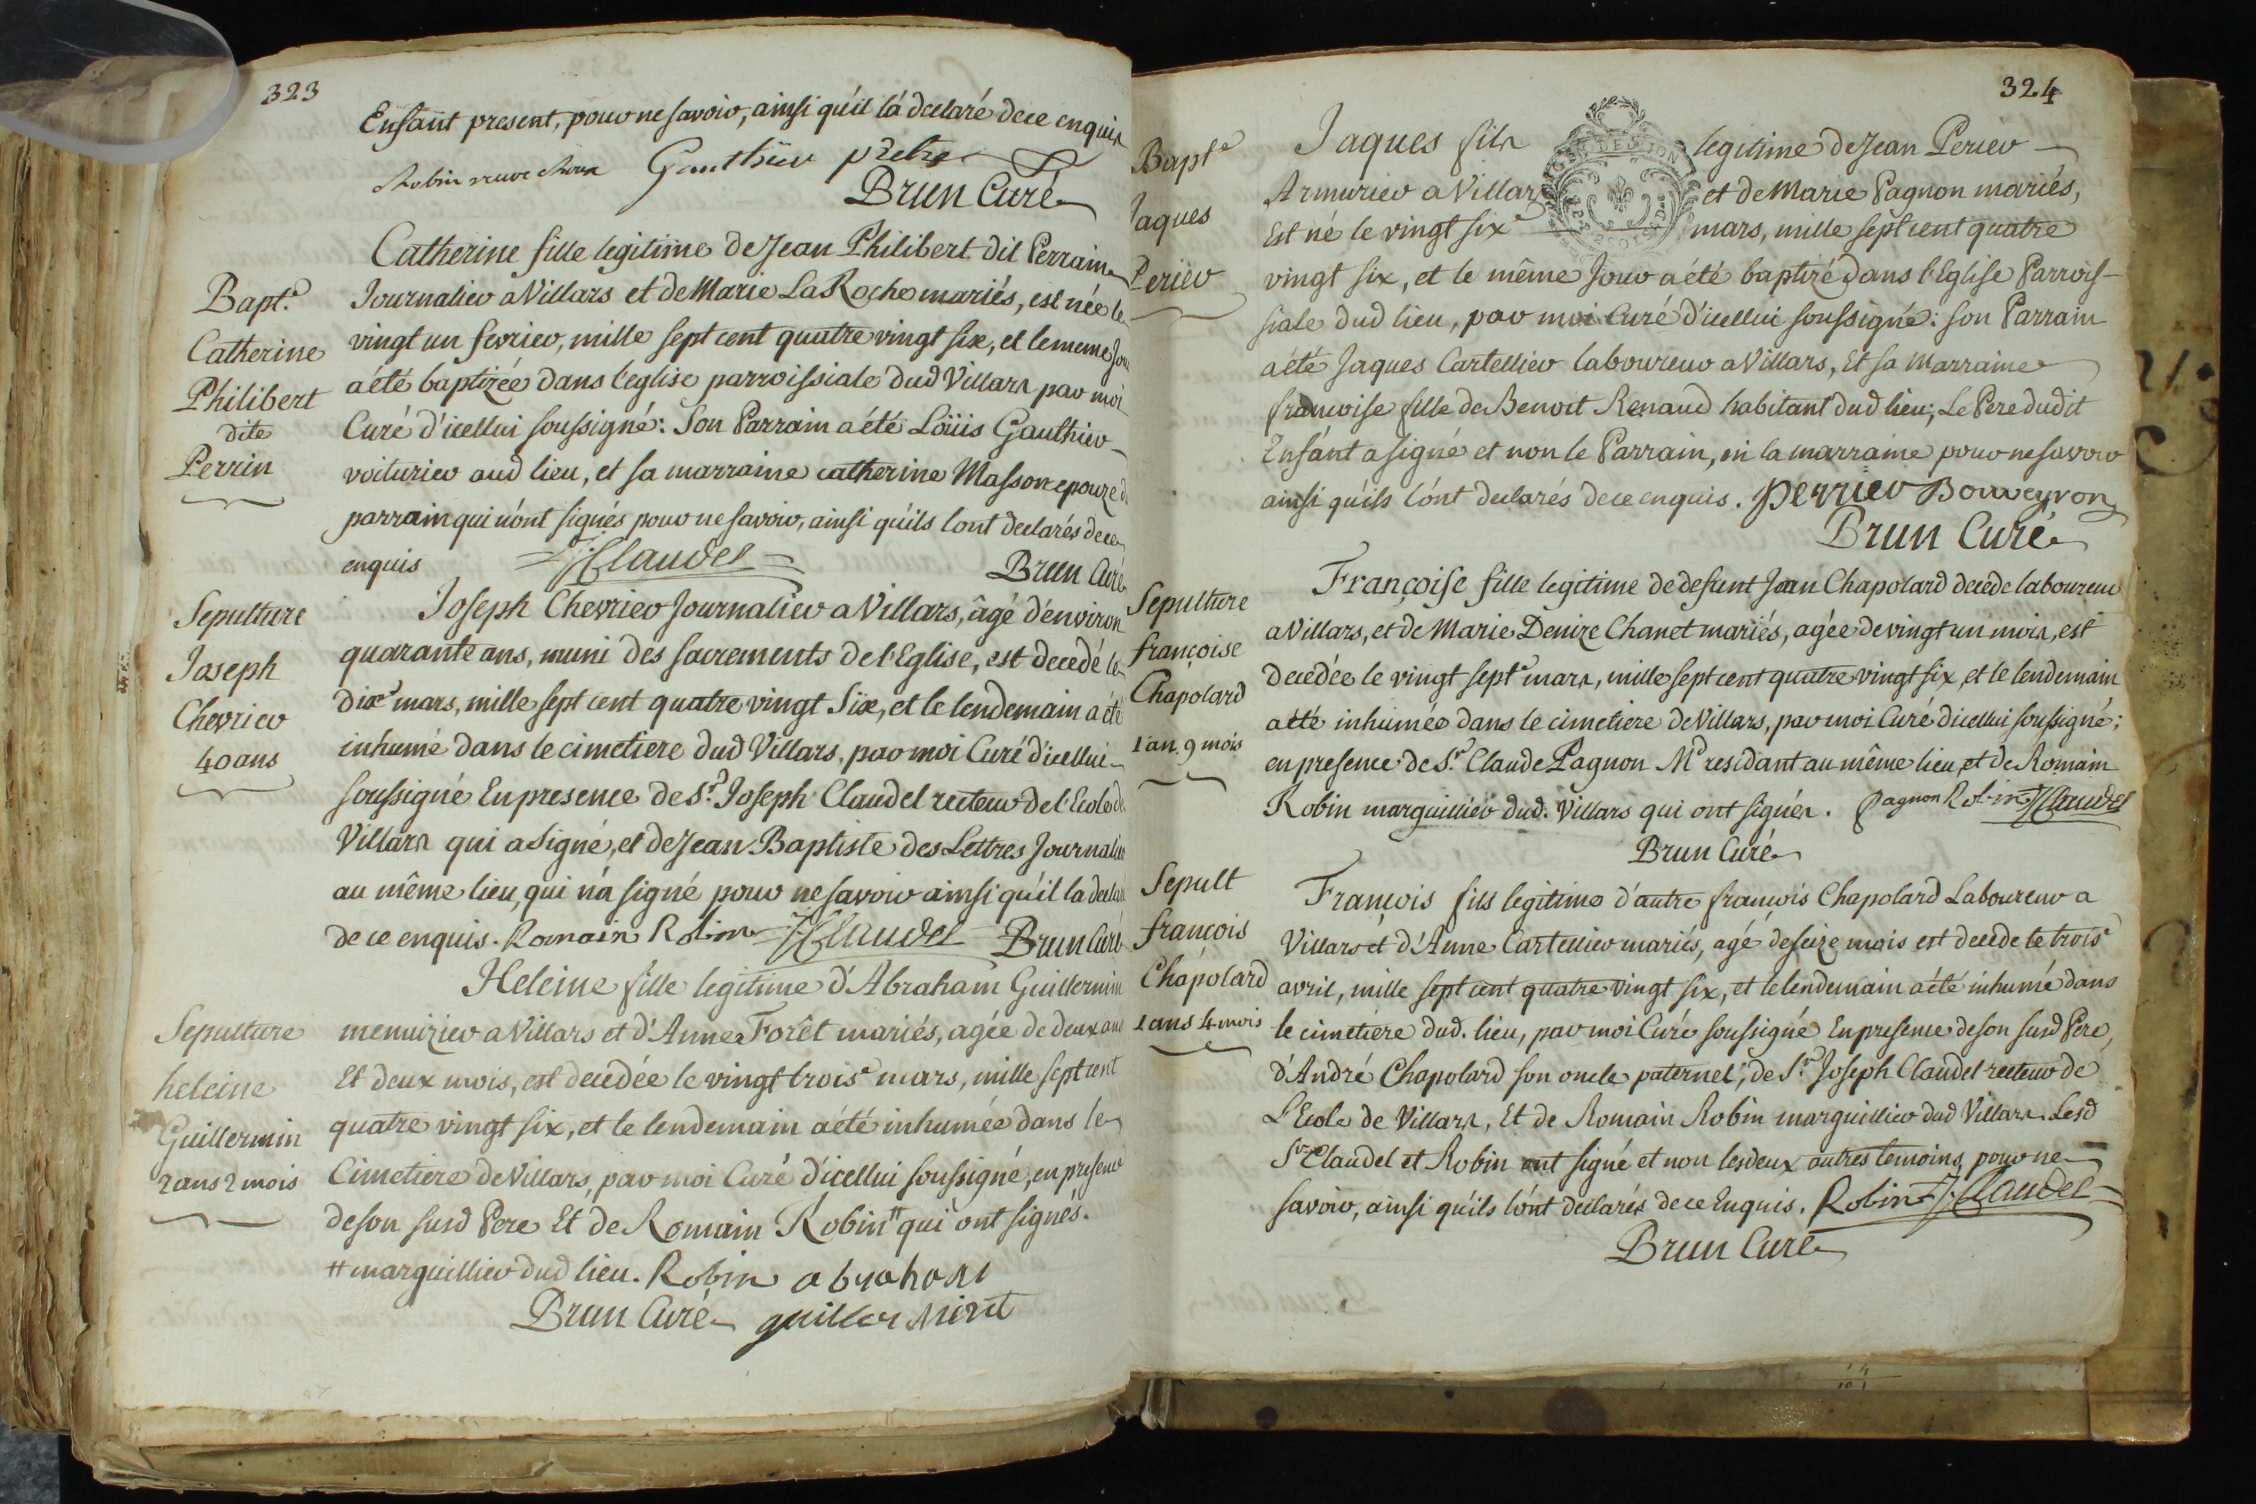 323
Enfant present, pour ne savoir, ainsi qu'il l'a declaré de ce enquis
Robin veuve Gauthier prêtre
Brun Curé
Bapt.e
Catherine
Philibert
dite
Perrin
Catherine fille legitime de Jean Philibert dit Perrain
Journalier a Villars et de Marie La Roche mariés, est née le
vingt un fevrier, mille sept cent quatre vingt six, et le meme Jour
a été baptizée dans l'eglise parroissiale dud Villars par moi
Curé d'icellui soussigné: Son Parrain a été Loüis Gauthier
voiturier aud lieu, et sa marraine catherine Masson epouze d
parrain qui n'ont signés pour ne savoir, ainsi qu'ils l'ont declarés de ce
enquis J Claudel
Brun Curé
Sepulture
Joseph
Chevrier
40 ans
Joseph Chevrier Journalier a Villars, âgé d'environ
quarante ans, muni des sacrements de l'Eglise, est decedé le
dixe mars, mille sept cent quatre vingt Six, et le lendemain a été
inhumé dans le cimetiere dud Villars, par moi Curé d'icellui
soussigné En presence de Sr. Joseph Claudel recteur de l'Ecole de
Villars qui a signé, et de Jean Baptiste des Lettres Journalier
au même lieu, qui n'a signé pour ne savoir ainsi qu'il la declaré
de ce enquis. Romain Robin J Claudel Brun Curé
Sepulture
heleine
Guillermin
2 ans 2 mois
Heleine fille legitime d'Abraham Guillermin
menuizier a Villars et d'Anne Forêt mariés, agée de deux ans
Et deux mois, est decedée le vingt troise mars, mille sept cent
quatre vingt six, et le lendemain a été inhumée dans le
Cimetiere de Villars, par moi Curé d'icellui soussigné, en presence
de son susd Pere Et de Romain Robin # qui ont signés.
# marguillier dud lieu. Robin abraham
Brun Curé guillermint
324
Bapte
Jaques
Perier
Jaques fils legitime de Jean Perier
Armurier a Villars et de Marie Pagnon mariés,
Est né le vingt sixe mars, mille sept cent quatre
vingt six, et le même Jour a été baptizé dans l'Eglise Parrois-
siale dud lieu, par moi Curé d'icellui soussigné: son Parrain
a été Jaques Cartellier laboureur a Villars, Et sa Marraine
francoise fille de Benoit Renaud habitant dud lieu; Le Pere dudit
Enfant a signé et non le Parrain, ni la marraine pour ne savoir
ainsi qu'ils l'ont declarés de ce enquis. perrier Bouveyron
Brun Curé
Sepulture
françoise
Chapolard
1 an 9 mois
Françoise fille legitime de defunt Jean Chapolard decede laboureur
a Villars, et de Marie Denize Chanet mariés, agée de vingt un mois, est
decedée le vingt septe mars, mille sept cent quatre vingt six, et le lendemain
a été inhumée dans le cimetiere de Villars, par moi Curé d'icellui soussigné;
en presence de Sr. Claude Pagnon Md residant au même lieu, et de Romain
Robin marguillier dud. Villars qui ont signés. Pagnon Robin J Claudel
Brun Curé
Sepult
françois
Chapolard
1 ans 4 mois
François fils legitime d'autre françois Chapolard Laboureur a
Villars et d'Anne Cartellier mariés, agé de seize mois est decede le troise
avril, mille sept cent quatre vingt six, et le lendemain a été inhumé dans
le cimetiere dud. lieu, par moi Curé soussigné En presence de son susd Pere,
d'André Chapolard son oncle paternel, de Sr. Joseph Claudel recteur de
L'Ecole de Villars, Et de Romain Robin marguillier dud Villars. Lesd
Srs Claudel et Robin ont signé et non les deux autres temoins, pour ne
savoir, ainsi qu'ils l'ont declarés de ce Enquis. Robin J. Claudel
Brun Curé